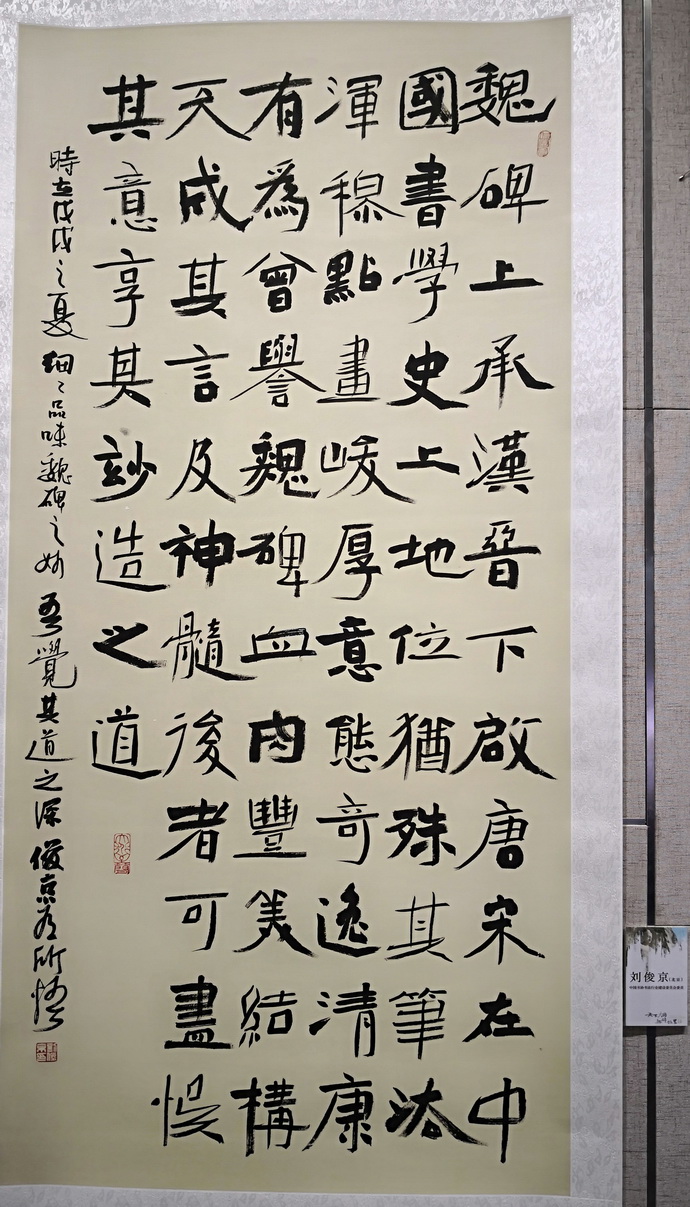 魏碑上承漢晉下啟唐宋在中
國書學史上地位猶殊其筆法
渾穆點畫峻厚意態奇逸清康
有為曾譽魏碑血肉豐美結構
天成其言及神髓後者可盡
其意享其玅造之道
時在戊戌之夏細〻品味魏碑之妙吾覺其道之深俊京有所悟
刘俊京